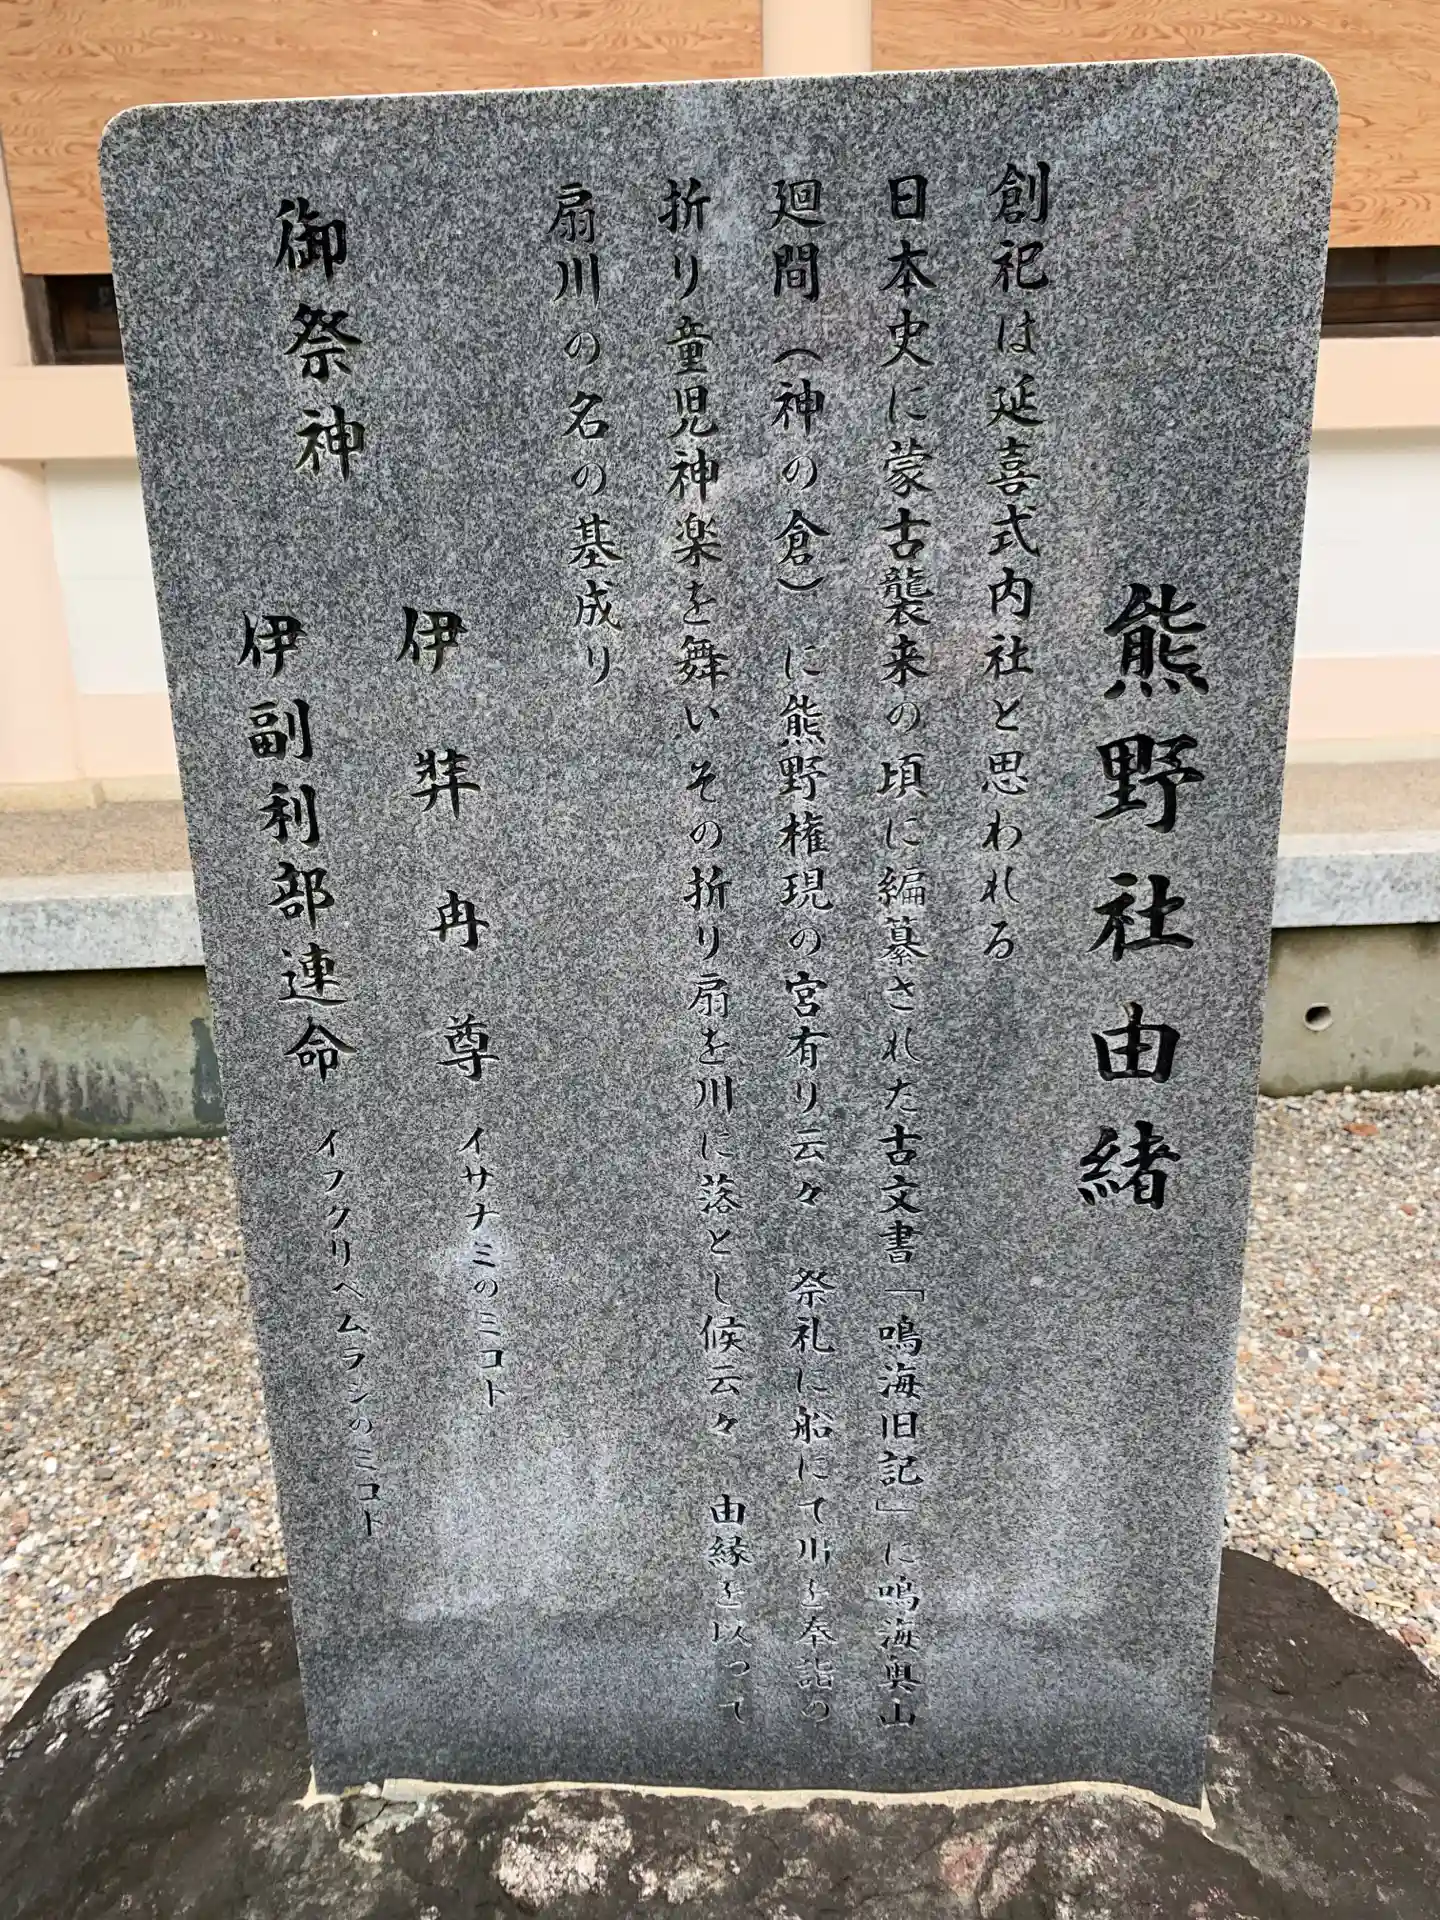 熊野社由緒
創祀は延喜式内社と思われる
日本史に蒙古襲来の頃に編纂された古文書「鳴海旧記」に鳴海奥山
廻間(神の倉)に熊野権現の宮有り云々 祭礼に船にて川を奉詣の
折り童児神楽を舞いその折り扇を川に落とし候云々 由縁を以って
扇川の名の基成り
御祭神
伊弉冉尊 イサナミのミコト
伊副利部連命 イフクリヘムラジのミコト